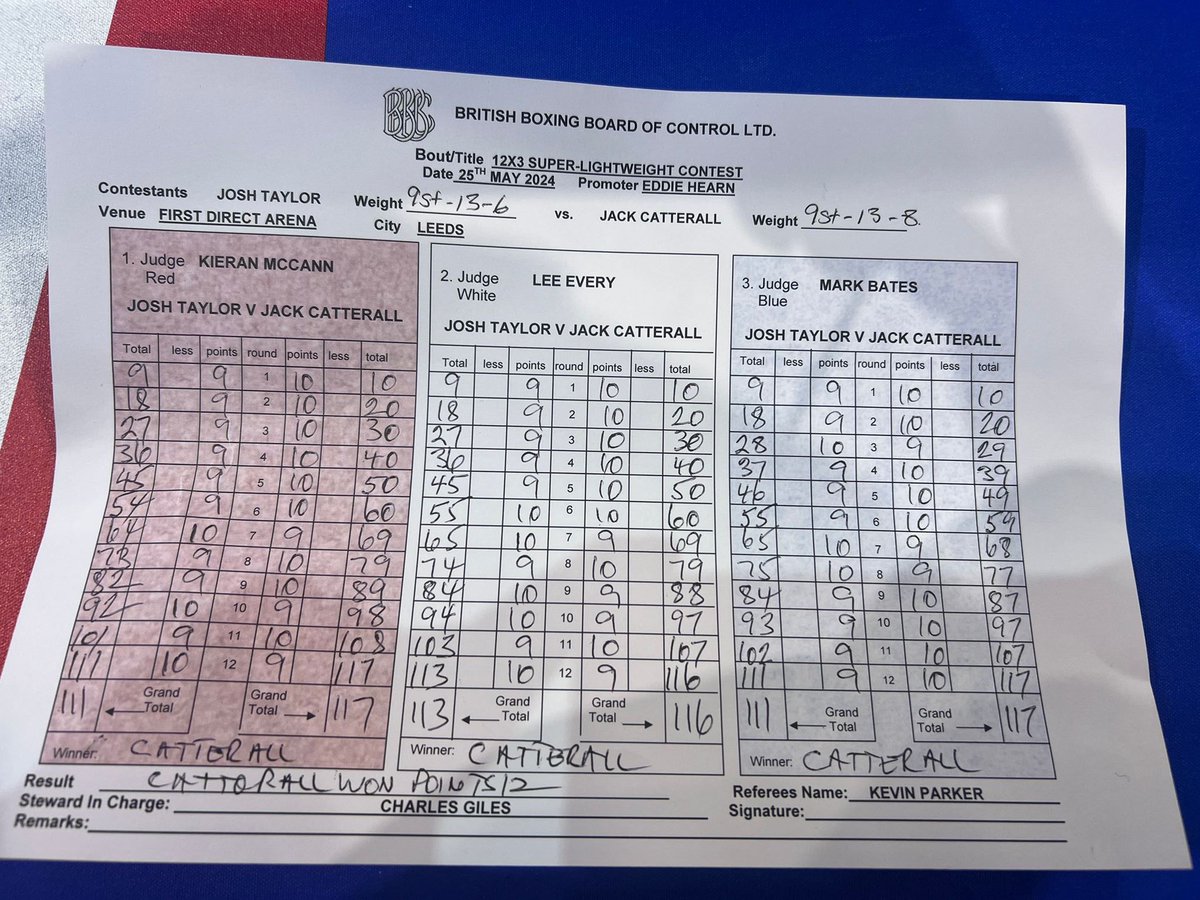 BBBC
BRITISH BOXING BOARD OF CONTROL LTD.
Bout/Title 12X3 SUPER-LIGHTWEIGHT CONTEST
Date 25TH MAY 2024 Promoter EDDIE HEARN
Contestants JOSH TAYLOR Weight 9st-13-6 vs. JACK CATTERALL Weight 9st-13-8.
Venue FIRST DIRECT ARENA City LEEDS
1. Judge KIERAN MCCANN
Red
JOSH TAYLOR V JACK CATTERALL
Total less points round points less total
9 9 1 10 10
18 9 2 10 20
27 9 3 10 30
36 9 4 10 40
45 9 5 10 50
54 9 6 10 60
64 10 7 9 69
73 9 8 10 79
82 9 9 10 89
92 10 10 9 98
101 9 11 10 108
111 10 12 9 117
111 Grand Total Grand Total 117
Winner: CATTERALL
2. Judge LEE EVERY
White
JOSH TAYLOR V JACK CATTERALL
Total less points round points less total
9 9 1 10 10
18 9 2 10 20
27 9 3 10 30
36 9 4 10 40
45 9 5 10 50
55 10 6 10 60
65 10 7 9 69
74 9 8 10 79
84 10 9 9 88
94 10 10 9 97
103 9 11 10 107
113 10 12 9 116
113 Grand Total Grand Total 116
Winner: CATTERALL
3. Judge MARK BATES
Blue
JOSH TAYLOR V JACK CATTERALL
Total less points round points less total
9 9 1 10 10
18 9 2 10 20
28 10 3 9 29
37 9 4 10 39
46 9 5 10 49
55 9 6 10 59
65 10 7 9 68
75 10 8 9 77
84 9 9 10 87
93 9 10 10 97
102 9 11 10 107
111 9 12 10 117
111 Grand Total Grand Total 117
Winner: CATTERALL
Result CATTORALL WON POINTS 12
Referees Name: KEVIN PARKER
Steward In Charge: CHARLES GILES
Signature:
Remarks: